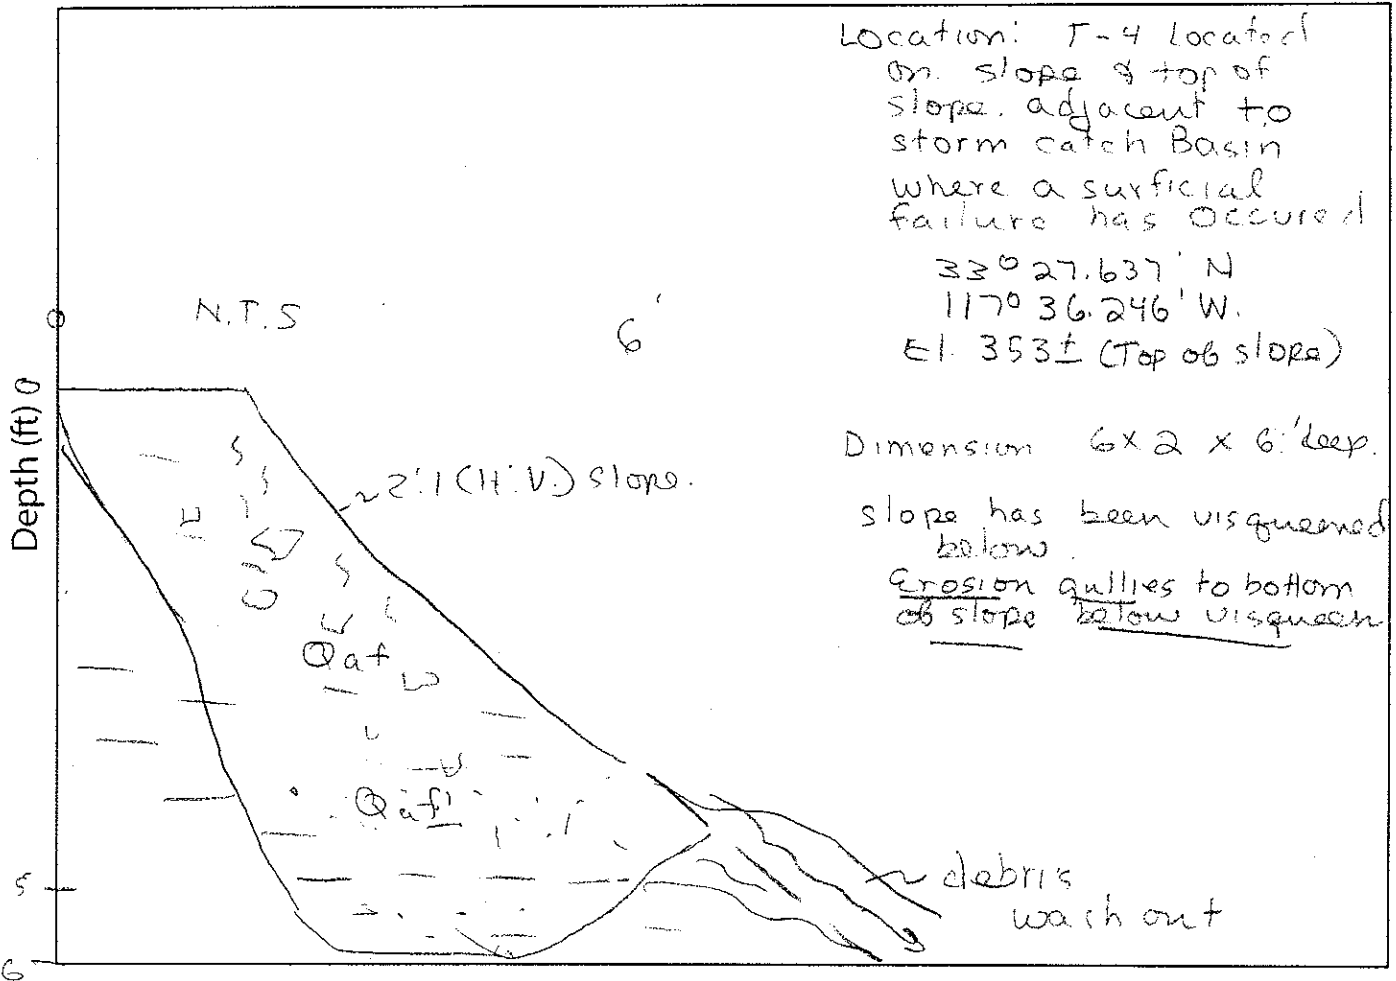 Location: T-4 Located
on slope & top of
slope. adjacent to
storm catch Basin
where a surficial
failure has occured
33° 27.637' N
117° 36.246' W.
El. 353± (Top of slope)
0
N.T.S
6'
Depth (ft) 0
Dimension 6 x 2 x 6' deep.
~ 2:1 (H:V.) slope.
slope has been visqueened
below.
Erosion gullies to bottom
of slope below visqueen
Qaf
Qaf
5
debris
wash out
6